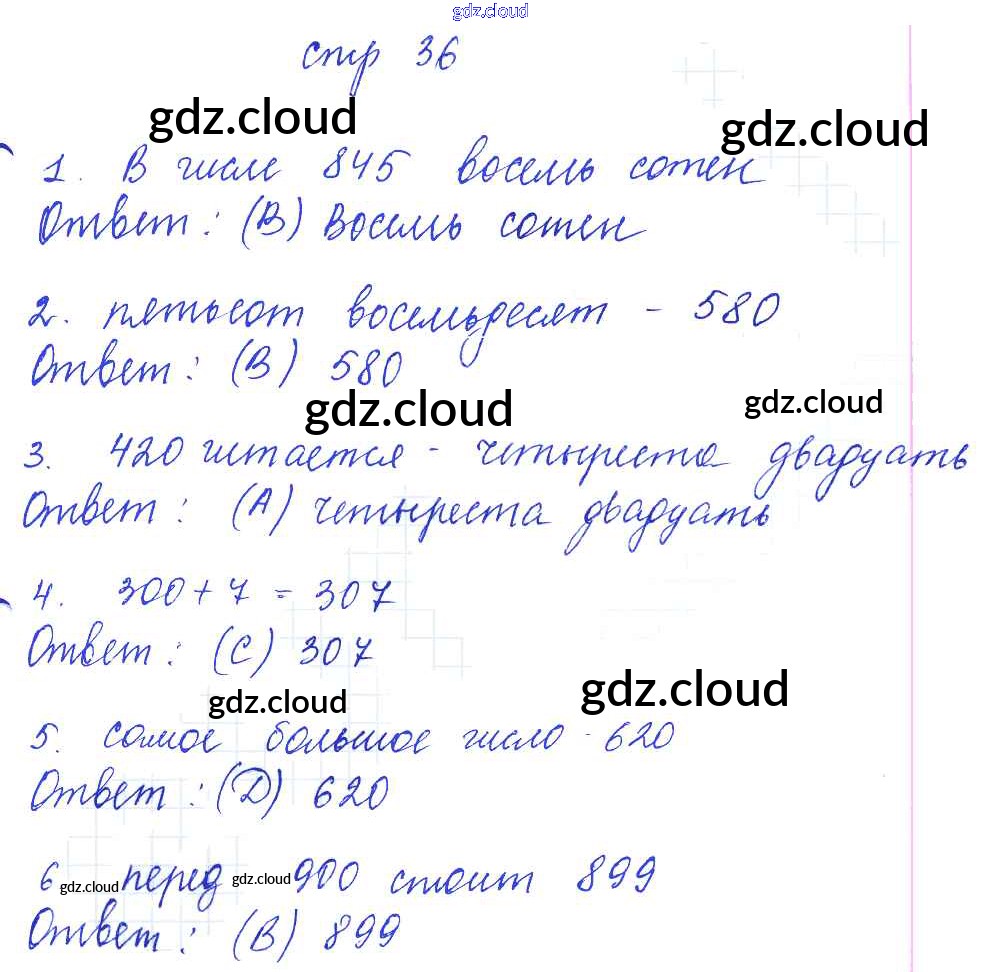 gdz.cloud
стр 36
gdz.cloud
gdz.cloud
1. В числе 845 восемь сотен
Ответ: (В) Восемь сотен
2. пятьсот восемьдесят - 580
Ответ: (В) 580
gdz.cloud
gdz.cloud
3. 420 читается - четыреста двадцать
Ответ: (А) четыреста двадцать
4. 300 + 7 = 307
Ответ: (С) 307
gdz.cloud
gdz.cloud
5. самое большое число - 620
Ответ: (D) 620
6 gdz.cloud перед gdz.cloud 900 стоит 899
Ответ: (В) 899